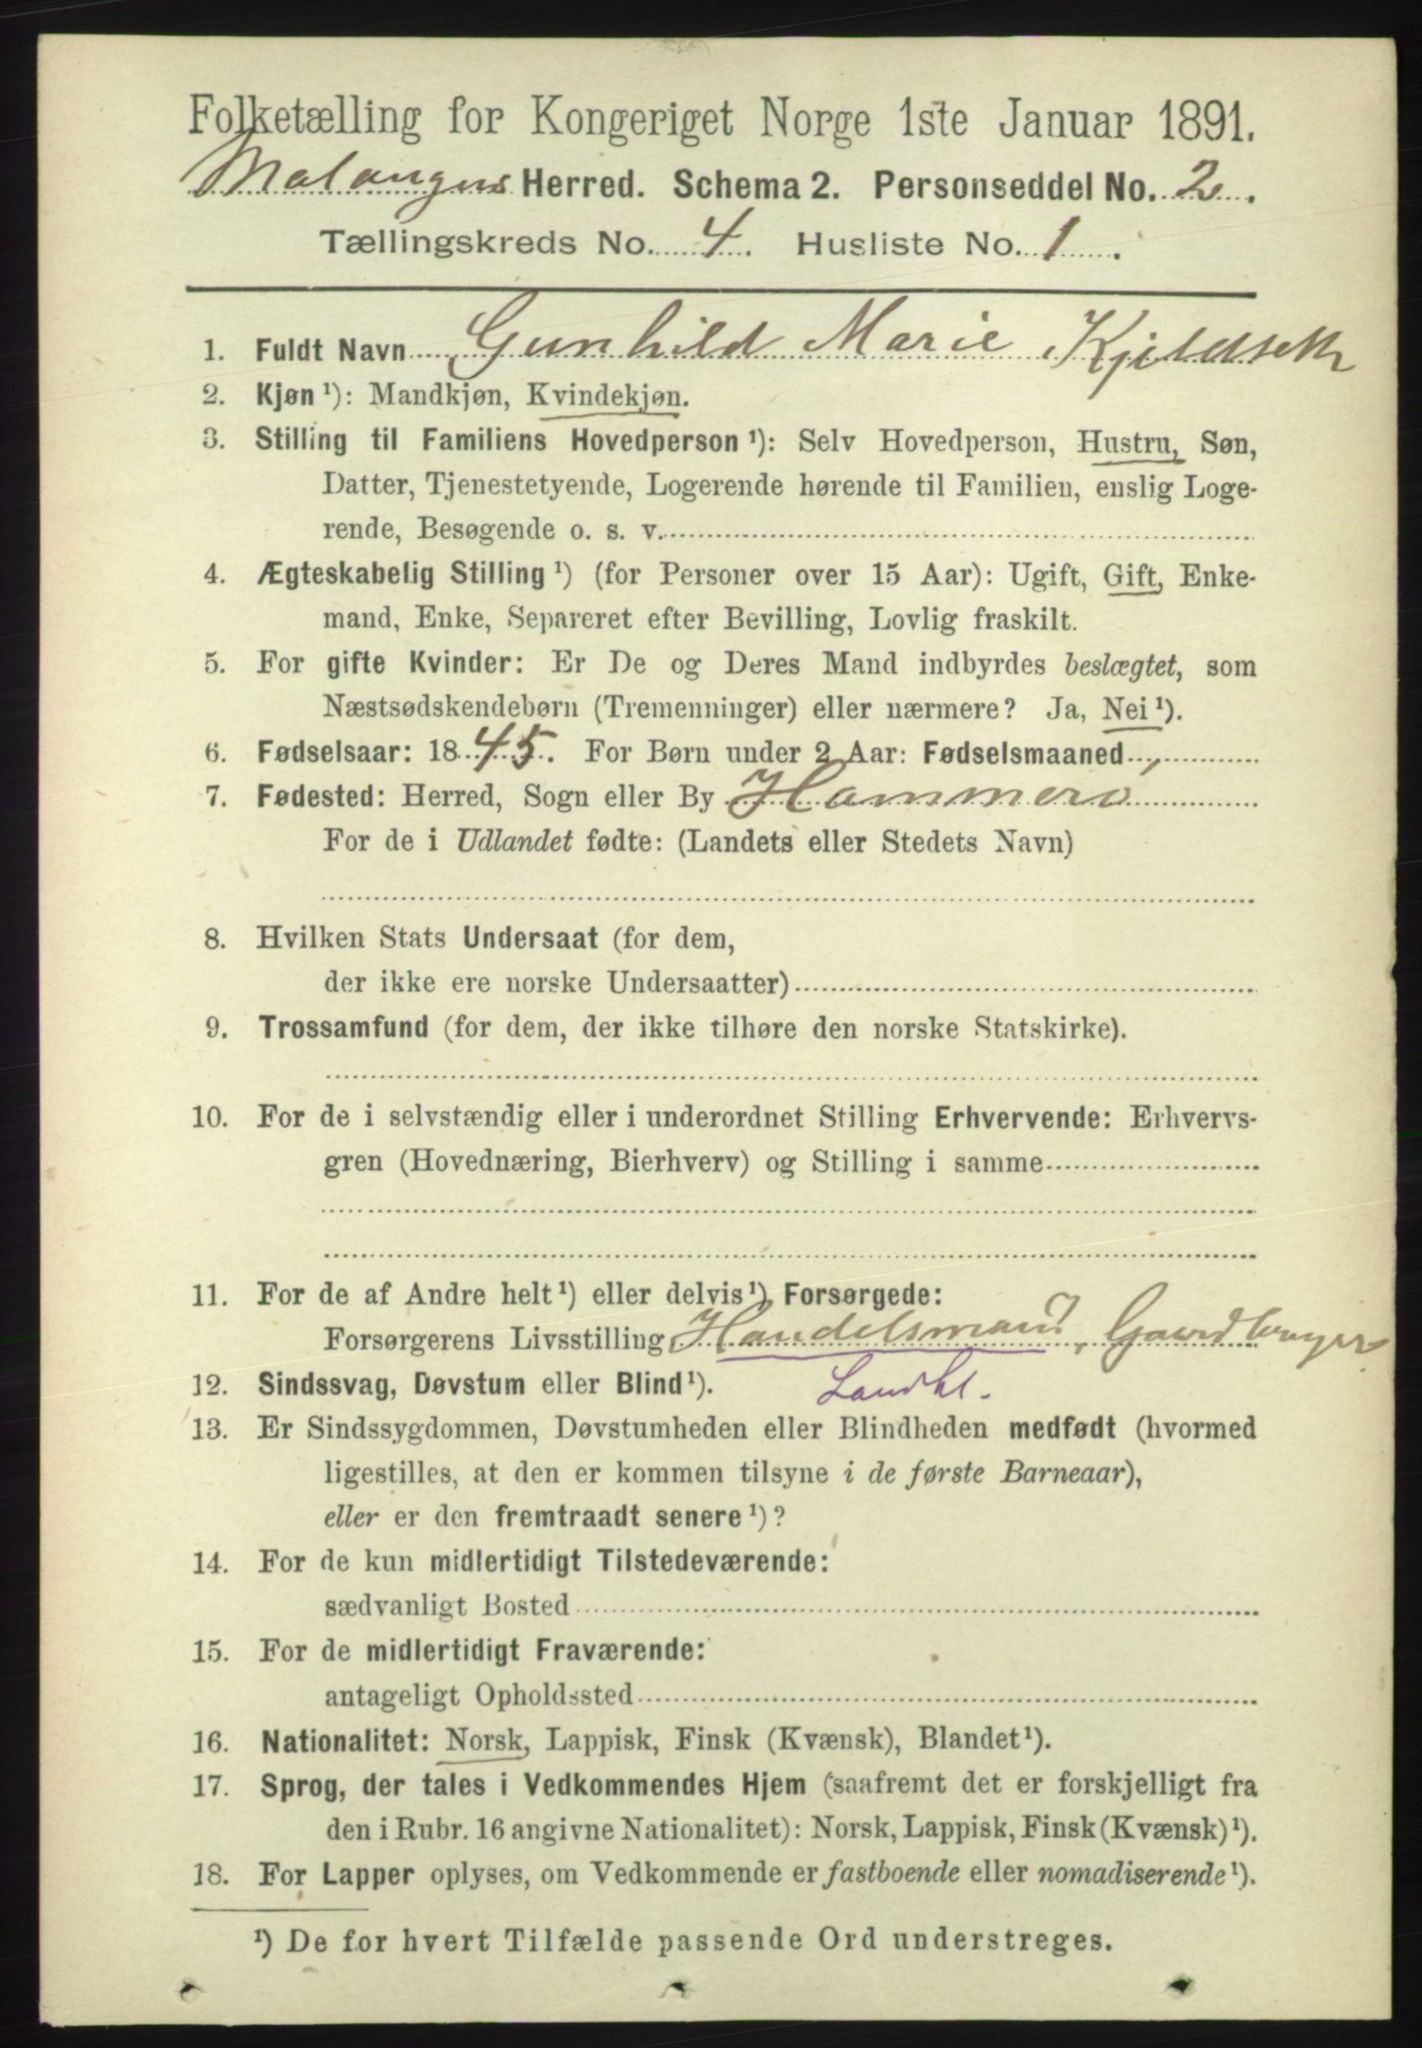 Folketælling for Kongeriget Norge 1ste Januar 1891.
Malangens Herred. Schema 2. Personseddel No. 2.
Tællingskreds No. 4. Husliste No. 1.
1. Fuldt Navn Gunhild Marie Kjeldseth
2. Kjøn ¹): Mandkjøn, Kvindekjøn.
3. Stilling til Familiens Hovedperson ¹): Selv Hovedperson, Hustru, Søn,
Datter, Tjenestetyende, Logerende hørende til Familien, enslig Loge-
rende, Besøgende o. s. v.
4. Ægteskabelig Stilling ¹) (for Personer over 15 Aar): Ugift, Gift, Enke-
mand, Enke, Separeret efter Bevilling, Lovlig fraskilt.
5. For gifte Kvinder: Er De og Deres Mand indbyrdes beslægtet, som
Næstsødskendebørn (Tremenninger) eller nærmere? Ja, Nei ¹).
6. Fødselsaar: 1845. For Børn under 2 Aar: Fødselsmaaned
7. Fødested: Herred, Sogn eller By Hammerø
For de i Udlandet fødte: (Landets eller Stedets Navn)
8. Hvilken Stats Undersaat (for dem,
der ikke ere norske Undersaatter)
9. Trossamfund (for dem, der ikke tilhøre den norske Statskirke).
10. For de i selvstændig eller i underordnet Stilling Erhvervende: Erhvervs-
gren (Hovednæring, Bierhverv) og Stilling i samme
11. For de af Andre helt ¹) eller delvis ¹) Forsørgede:
Forsørgerens Livsstilling Handelsmand, Gaardbruger
12. Sindssvag, Døvstum eller Blind ¹). Landhl.
13. Er Sindssygdommen, Døvstumheden eller Blindheden medfødt (hvormed
ligestilles, at den er kommen tilsyne i de første Barneaar),
eller er den fremtraadt senere ¹)?
14. For de kun midlertidigt Tilstedeværende:
sædvanligt Bosted
15. For de midlertidigt Fraværende:
antageligt Opholdssted
16. Nationalitet: Norsk, Lappisk, Finsk (Kvænsk), Blandet ¹).
17. Sprog, der tales i Vedkommendes Hjem (saafremt det er forskjelligt fra
den i Rubr. 16 angivne Nationalitet): Norsk, Lappisk, Finsk (Kvænsk) ¹).
18. For Lapper oplyses, om Vedkommende er fastboende eller nomadiserende ¹).
¹) De for hvert Tilfælde passende Ord understreges.